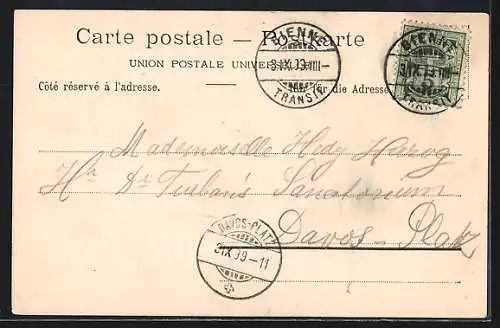 Carte postale — Postkarte
UNION POSTALE UNIVERSELLE
Côté réservé à l'adresse.
für die Adresse
BIENNE
TRANSIT
BIENNE
TRANSIT
Mademoiselle Hedy
Hr. Dr. Turbans Sanatorium
Davos-Platz
DAVOS-PLATZ